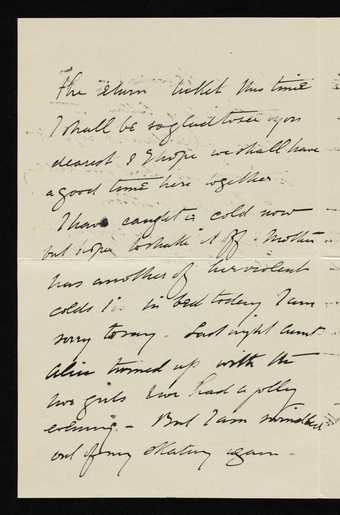 the return ticket this time
I shall be so glad to see you
dearest & I hope we shall have
a good time here together
I have caught a cold now
but hope to shake it off. Mother
has another of her violent
colds & is in bed today I am
sorry to say. Last night Aunt
Alice turned up with the
two girls & we had a jolly
evening - But I am swindled
out of my skating again -